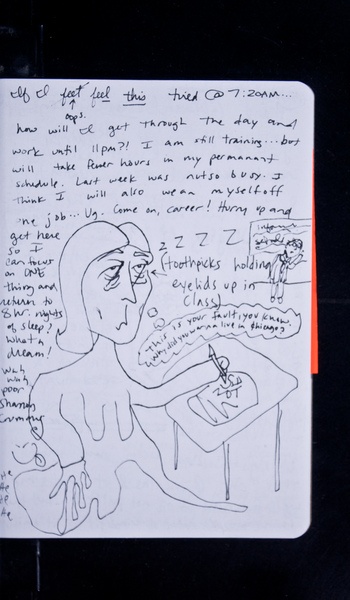 If I feet feel this tired @ 7:20AM...
oops.
how will I get through the day and
work until 11pm?! I am still training...but
will take fewer hours in my permanant
schedule. Last week was nutso busy. I
think I will also wean myself off
one job... Ug. Come on, career! Hurry up and
get here
so I
can focus
on ONE
thing and
return to
8 hr. nights
of sleep!
What a
dream!
Wah
wah
poor
z Z Z Z
(toothpicks holding
eyelids up in
class)
This is your fault, you know.
Why did you wanna live in Chicago?
He
He